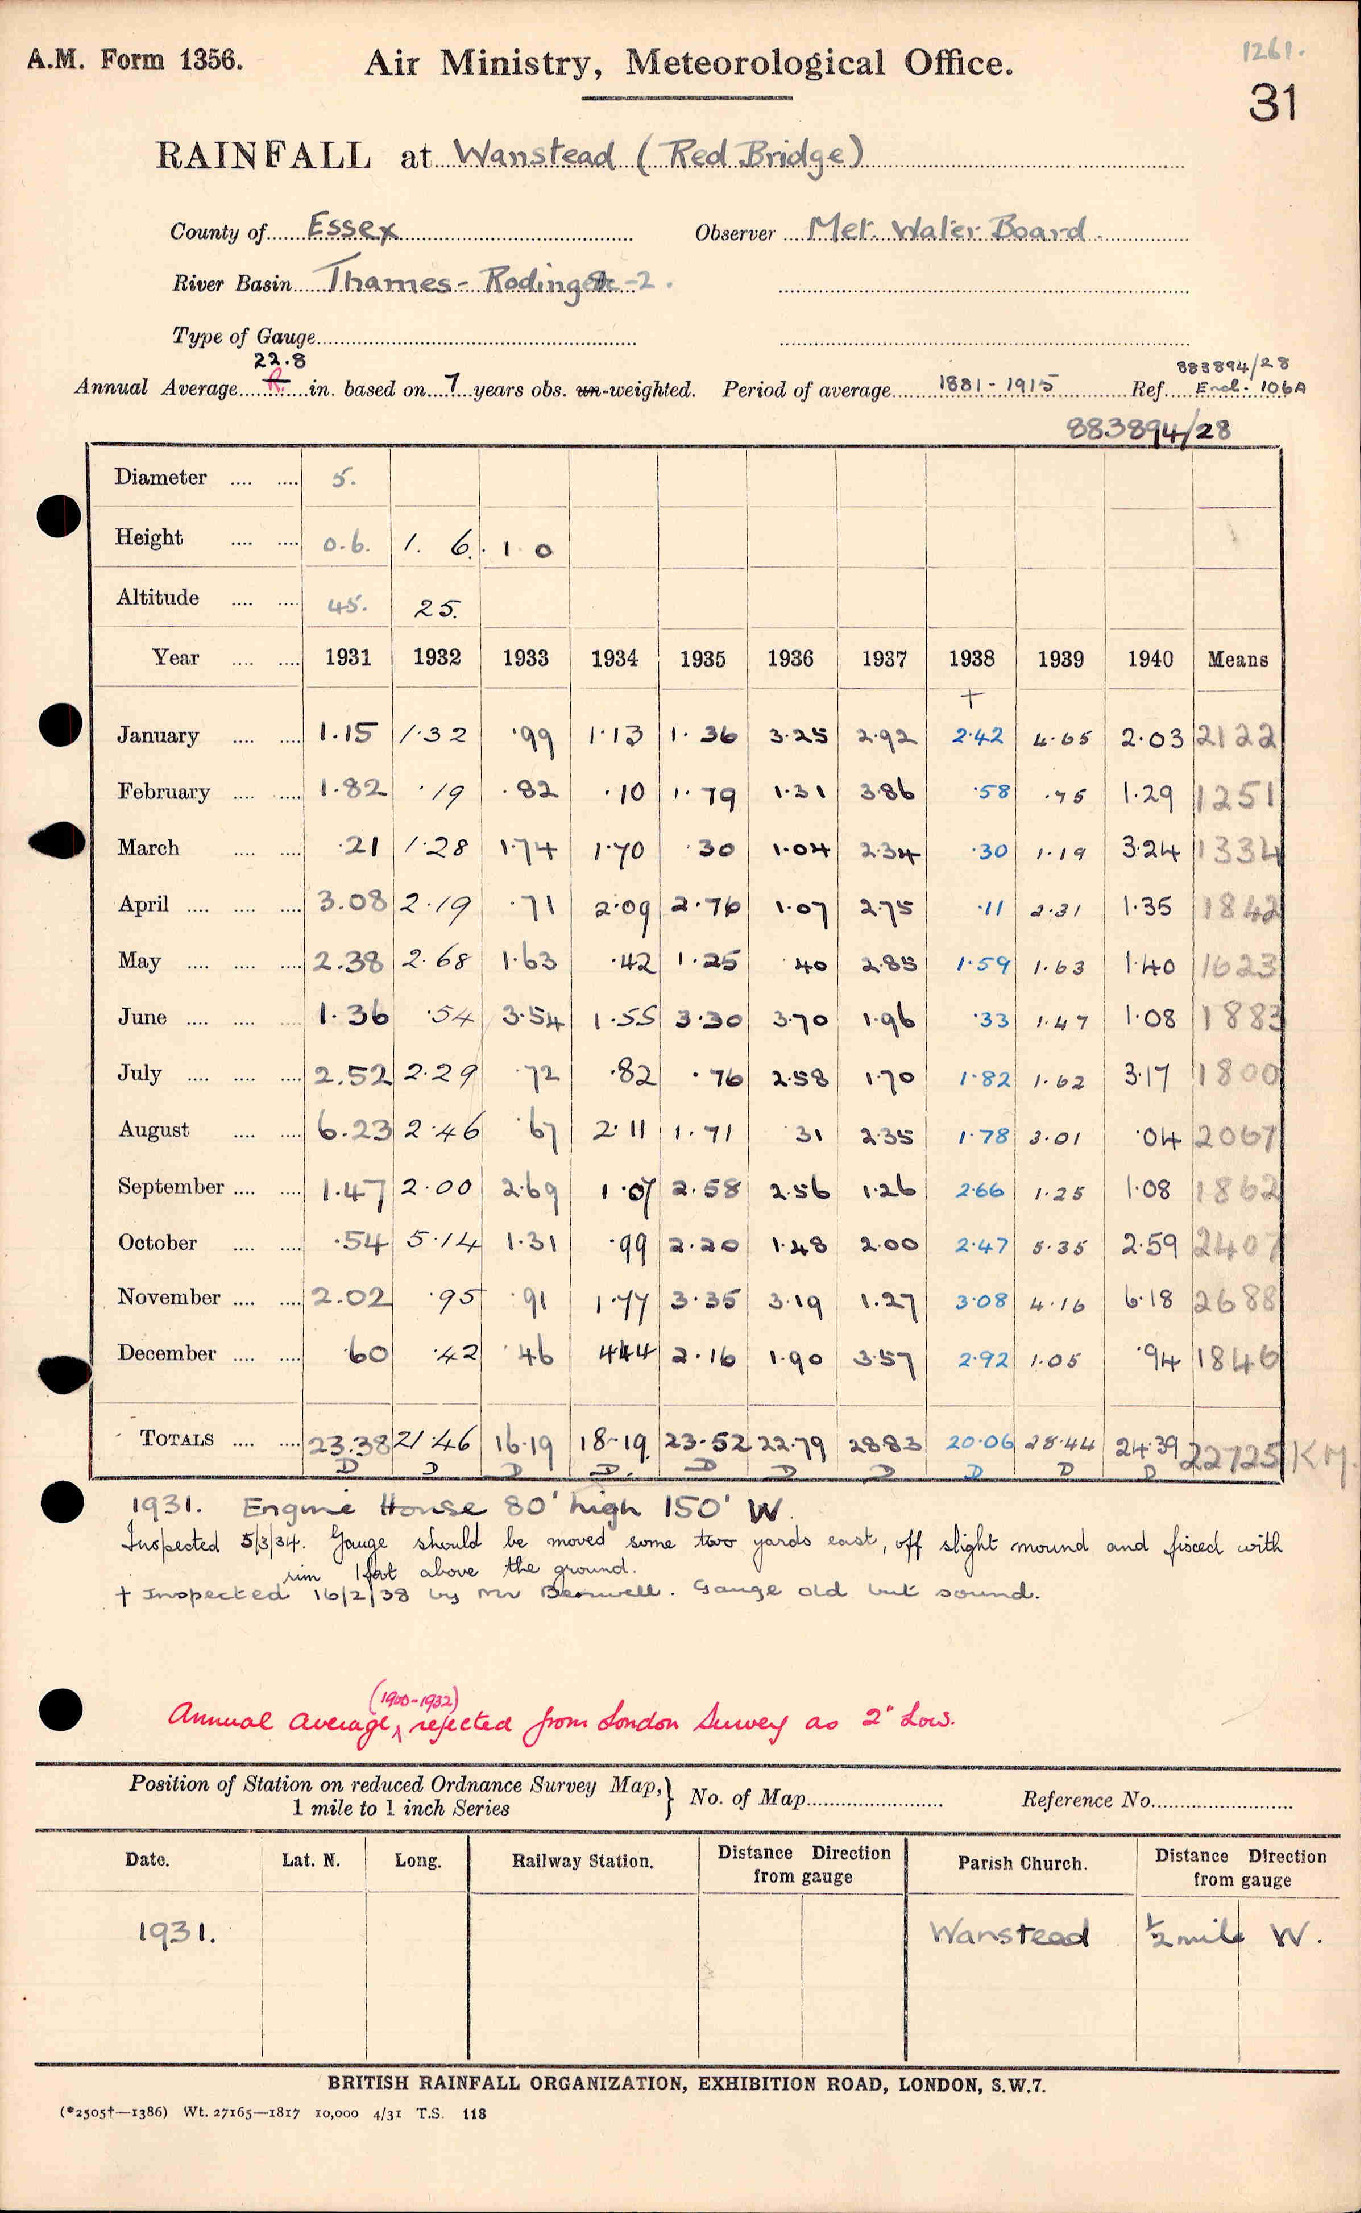 A.M. Form 1356. Air Ministry, Meteorological Office. 1261.
31
RAINFALL at Wanstead (Red Bridge)
County of Essex Observer Met. Water Board.
River Basin Thames - Roding -2.
Type of Gauge
22.8 883894/28
Annual Average R. in. based on 7 years obs. un-weighted. Period of average 1881-1915 Ref. Encl. 106A
883894/28
Diameter 5.
Height 0.6. 1. 6. 1 0
Altitude 45. 25.
Year 1931 1932 1933 1934 1935 1936 1937 1938 1939 1940 Means
+
January 1.15 1.32 .99 1.13 1.36 3.25 2.92 2.42 4.65 2.03 2122
February 1.82 .19 .82 .10 1.79 1.31 3.86 .58 .75 1.29 1251
March .21 1.28 1.74 1.70 .30 1.04 2.34 .30 1.19 3.24 1334
April 3.08 2.19 .71 2.09 2.76 1.07 2.75 .11 2.31 1.35 1842
May 2.38 2.68 1.63 .42 1.25 .40 2.85 1.59 1.63 1.40 1623
June 1.36 .54 3.54 1.55 3.30 3.70 1.96 .33 1.47 1.08 1883
July 2.52 2.29 .72 .82 .76 2.58 1.70 1.82 1.62 3.17 1800
August 6.23 2.46 .67 2.11 1.71 .31 2.35 1.78 3.01 .04 2067
September 1.47 2.00 2.69 1.07 2.58 2.56 1.26 2.66 1.25 1.08 1862
October .54 5.14 1.31 .99 2.20 1.48 2.00 2.47 5.35 2.59 2407
November 2.02 .95 .91 1.77 3.35 3.19 1.27 3.08 4.16 6.18 2688
December .60 .42 .46 4.44 2.16 1.90 3.57 2.92 1.05 .94 1846
TOTALS 23.38 21.46 16.19 18.19 23.52 22.79 28.83 20.06 28.44 24.39 22725 KM.
D D D D. D D D D D D
1931. Engine House 80' high 150' W.
Inspected 5/3/34. Gauge should be moved some two yards east, off slight mound and fixed with
rim 1 foot above the ground.
† Inspected 16/2/38 by Mr Benwell. Gauge old but sound.
(1900-1932)
Annual average ^ rejected from London Survey as 2" Low.
Position of Station on reduced Ordnance Survey Map,} No. of Map Reference No.
1 mile to 1 inch Series
Date. Lat. N. Long. Railway Station. Distance Direction from gauge Parish Church. Distance Direction from gauge
1931. Wanstead ½ mile W.
BRITISH RAINFALL ORGANIZATION, EXHIBITION ROAD, LONDON, S.W.7.
(*2505†—1386) Wt. 27165—1817 10,000 4/31 T.S. 118